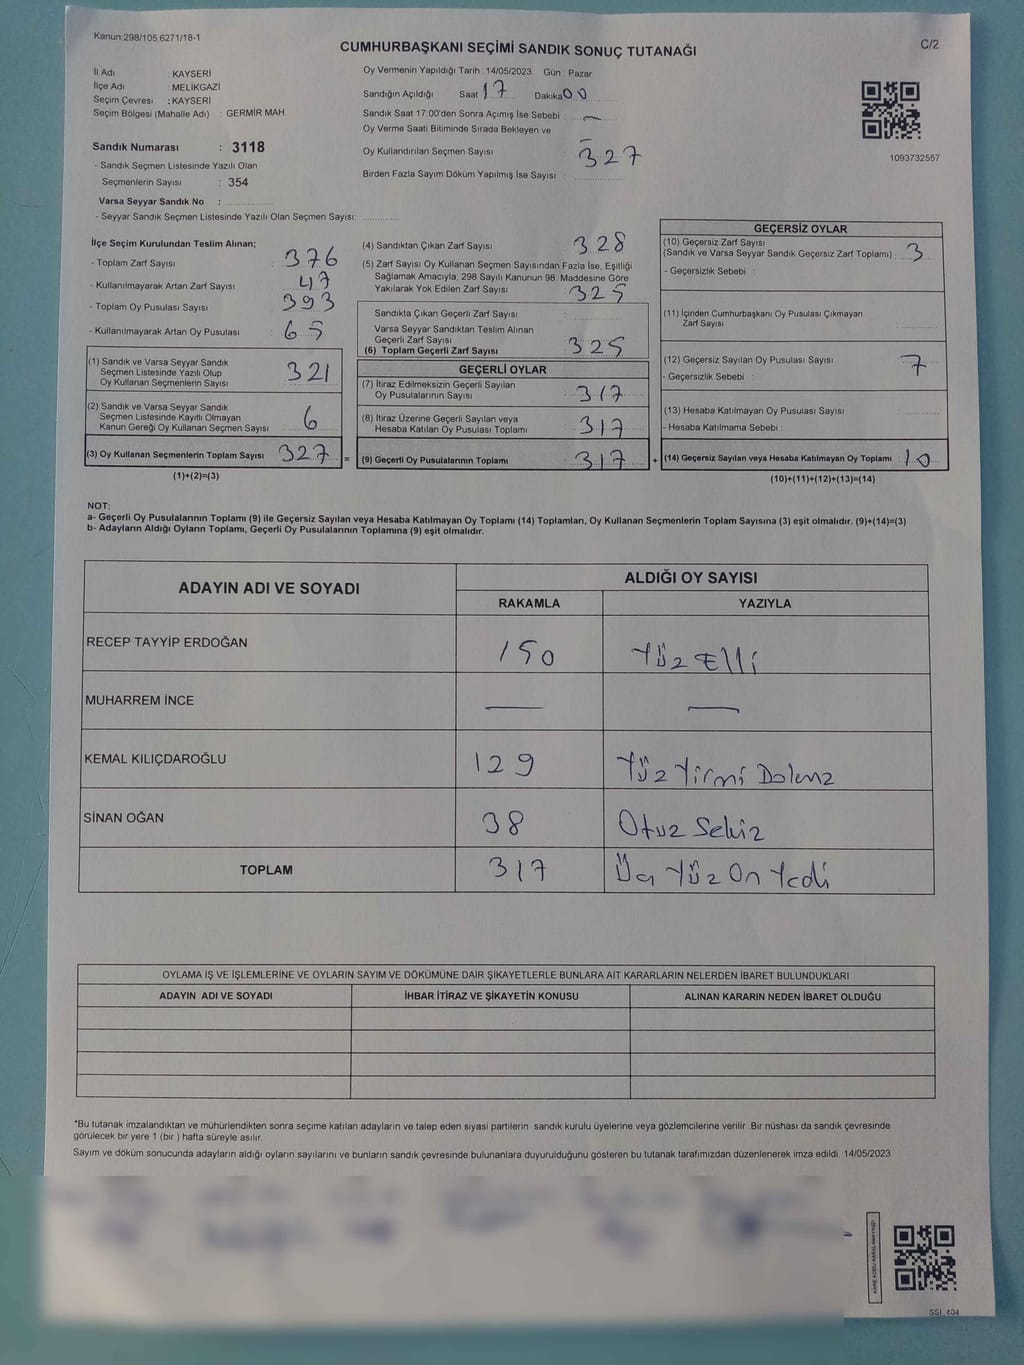 Kanun:298/105;6271/18-1
CUMHURBAŞKANI SEÇİMİ SANDIK SONUÇ TUTANAĞI
C/2
İl Adı : KAYSERİ
İlçe Adı : MELİKGAZİ
Seçim Çevresi : KAYSERİ
Seçim Bölgesi (Mahalle Adı) : GERMİR MAH.
Sandık Numarası : 3118
- Sandık Seçmen Listesinde Yazılı Olan
Seçmenlerin Sayısı : 354
Varsa Seyyar Sandık No :
- Seyyar Sandık Seçmen Listesinde Yazılı Olan Seçmen Sayısı:
Oy Vermenin Yapıldığı Tarih : 14/05/2023 Gün : Pazar
Sandığın Açıldığı Saat 17 Dakika 00
Sandık Saat 17:00'den Sonra Açımış İse Sebebi
Oy Verme Saati Bitiminde Sırada Bekleyen ve
Oy Kullandırılan Seçmen Sayısı
327
Birden Fazla Sayım Döküm Yapılmış İse Sayısı :
1093732557
İlçe Seçim Kurulundan Teslim Alınan;
- Toplam Zarf Sayısı : 376
- Kullanılmayarak Artan Zarf Sayısı : 47
- Toplam Oy Pusulası Sayısı : 393
- Kullanılmayarak Artan Oy Pusulası : 65
(1) Sandık ve Varsa Seyyar Sandık
Seçmen Listesinde Yazılı Olup
Oy Kullanan Seçmenlerin Sayısı : 321
(2) Sandık ve Varsa Seyyar Sandık
Seçmen Listesinde Kayıtlı Olmayan
Kanun Gereği Oy Kullanan Seçmen Sayısı : 6
(3) Oy Kullanan Seçmenlerin Toplam Sayısı : 327 =
(1)+(2)=(3)
(4) Sandıktan Çıkan Zarf Sayısı 328
(5) Zarf Sayısı Oy Kullanan Seçmen Sayısından Fazla İse, Eşitliği
Sağlamak Amacıyla; 298 Sayılı Kanunun 98. Maddesine Göre
Yakılarak Yok Edilen Zarf Sayısı : 325
Sandıkta Çıkan Geçerli Zarf Sayısı :
Varsa Seyyar Sandıktan Teslim Alınan
Geçerli Zarf Sayısı :
(6) Toplam Geçerli Zarf Sayısı : 325
GEÇERLİ OYLAR
(7) İtiraz Edilmeksizin Geçerli Sayılan
Oy Pusulalarının Sayısı : 317
(8) İtiraz Üzerine Geçerli Sayılan veya
Hesaba Katılan Oy Pusulası Toplamı : 317
(9) Geçerli Oy Pusulalarının Toplamı : 317 +
GEÇERSİZ OYLAR
(10) Geçersiz Zarf Sayısı
(Sandık ve Varsa Seyyar Sandık Geçersiz Zarf Toplamı) : 3
- Geçersizlik Sebebi :
(11) İçinden Cumhurbaşkanı Oy Pusulası Çıkmayan
Zarf Sayısı :
(12) Geçersiz Sayılan Oy Pusulası Sayısı : 7
- Geçersizlik Sebebi :
(13) Hesaba Katılmayan Oy Pusulası Sayısı :
- Hesaba Katılmama Sebebi :
(14) Geçersiz Sayılan veya Hesaba Katılmayan Oy Toplamı : 10
(10)+(11)+(12)+(13)=(14)
NOT:
a- Geçerli Oy Pusulalarının Toplamı (9) ile Geçersiz Sayılan veya Hesaba Katılmayan Oy Toplamı (14) Toplamları, Oy Kullanan Seçmenlerin Toplam Sayısına (3) eşit olmalıdır. (9)+(14)=(3)
b- Adayların Aldığı Oyların Toplamı, Geçerli Oy Pusulalarının Toplamına (9) eşit olmalıdır.
ADAYIN ADI VE SOYADI
ALDIĞI OY SAYISI
RAKAMLA YAZIYLA
RECEP TAYYİP ERDOĞAN 150 Yüz Elli
MUHARREM İNCE — —
KEMAL KILIÇDAROĞLU 129 Yüz Yirmi Dokuz
SİNAN OĞAN 38 Otuz Sekiz
TOPLAM 317 Üç Yüz On Yedi
OYLAMA İŞ VE İŞLEMLERİNE VE OYLARIN SAYIM VE DÖKÜMÜNE DAİR ŞİKAYETLERLE BUNLARA AİT KARARLARIN NELERDEN İBARET BULUNDUKLARI
ADAYIN ADI VE SOYADI İHBAR İTİRAZ VE ŞİKAYETİN KONUSU ALINAN KARARIN NEDEN İBARET OLDUĞU
*Bu tutanak imzalandıktan ve mühürlendikten sonra seçime katılan adayların ve talep eden siyasi partilerin sandık kurulu üyelerine veya gözlemcilerine verilir. Bir nüshası da sandık çevresinde
görülecek bir yere 1 (bir ) hafta süreyle asılır.
Sayım ve döküm sonucunda adayların aldığı oyların sayılarını ve bunların sandık çevresinde bulunanlara duyurulduğunu gösteren bu tutanak tarafımızdan düzenlenerek imza edildi. 14/05/2023
KARE KODU KARALAMAYINIZ!
SSİ_404